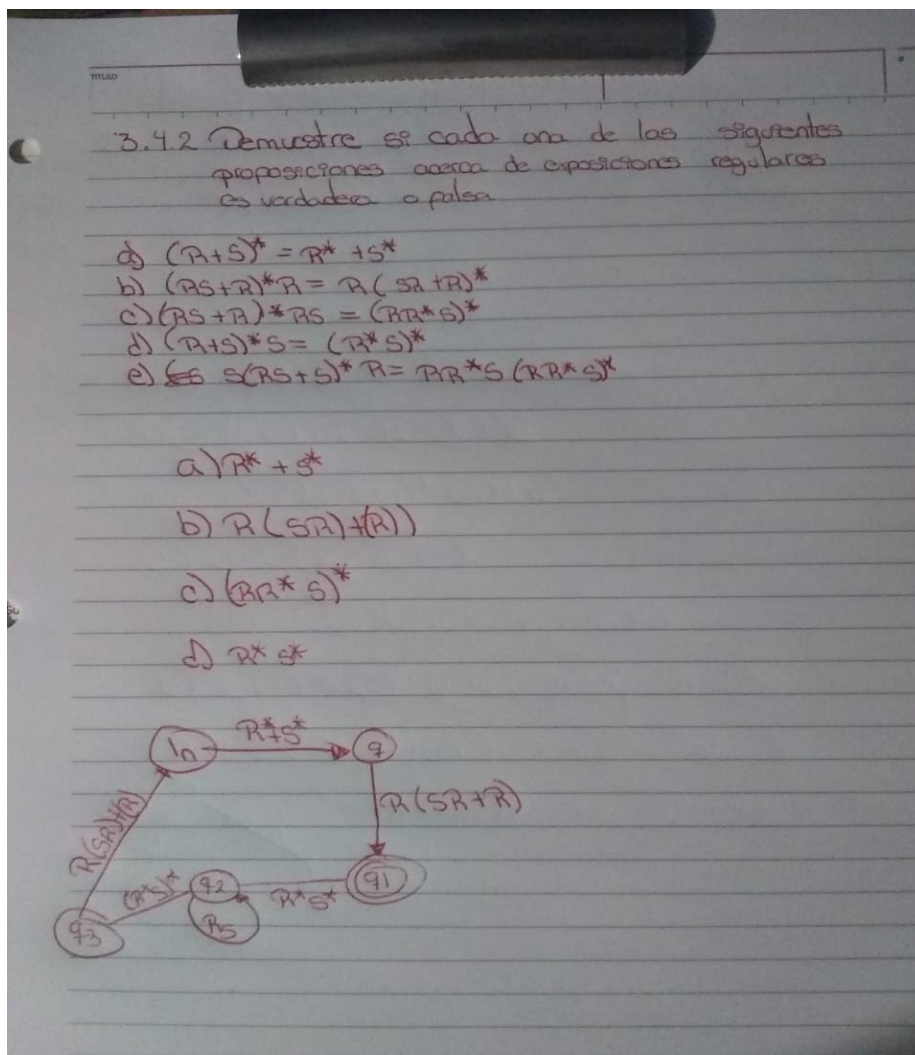 TITULO
3.4.2 Demuestre si cada una de las siguientes
proposiciones acerca de exposiciones regulares
es verdadera o falsa
a) (R+S)* = R* + S*
b) (RS+R)*R = R(SR+R)*
c) (RS+R)*RS = (RR*S)*
d) (R+S)*S = (R*S)*
e) S(RS+S)*R = RR*S(RR*S)*
a) R* + S*
b) R(SR)+(R))
c) (RR* S)*
d) R* S*
In R*+S* q
R(SR)+(R) R(SR+R)
q3 (R*S)* q2 R*S* q1
RS